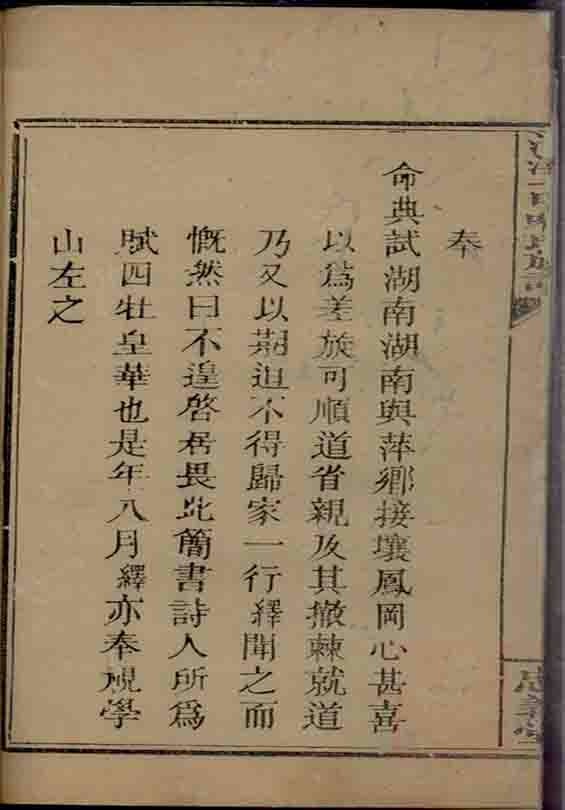 奉
命典試湖南湖南與萍鄉接壤鳳岡心甚喜
以為差旋可順道省親及其撤棘就道
乃又以期迫不得歸家一行繹聞之而
慨然曰不遑啓居畏此簡書詩人所為
賦四牡皇華也是年八月繹亦奉視學
山左之